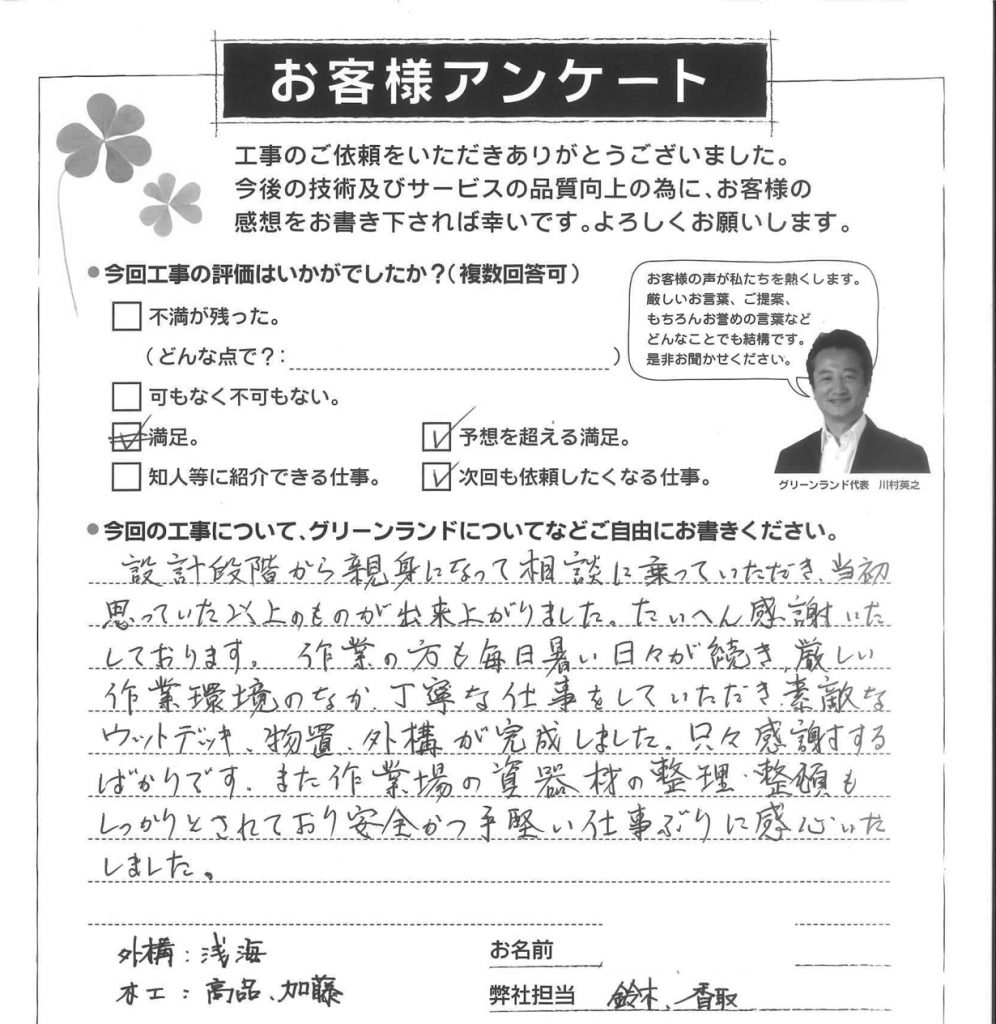 お客様アンケート
工事のご依頼をいただきありがとうございました。
今後の技術及びサービスの品質向上の為に、お客様の
感想をお書き下されば幸いです。よろしくお願いします。
●今回工事の評価はいかがでしたか？(複数回答可)
不満が残った。
(どんな点で？: )
可もなく不可もない。
満足。
予想を超える満足。
知人等に紹介できる仕事。
次回も依頼したくなる仕事。
お客様の声が私たちを熱くします。
厳しいお言葉、ご提案、
もちろんお誉めの言葉など
どんなことでも結構です。
是非お聞かせください。
グリーンランド代表 川村英之
●今回の工事について、グリーンランドについてなどご自由にお書きください。
設計段階から親身になって相談に乗っていただき、当初
思っていた以上のものが出来上がりました。たいへん感謝いた
しております。 作業の方も毎日暑い日々が続き、厳しい
作業環境のなか、丁寧な仕事をしていただき、素敵な
ウットデッキ、物置、外構が完成しました。只々感謝する
ばかりです。また作業場の資器材の整理・整頓も
しっかりとされており安全かつ手堅い仕事ぶりに感心いた
しました。
外構：浅海
木工：高品、加藤
お名前
弊社担当 鈴木、香取